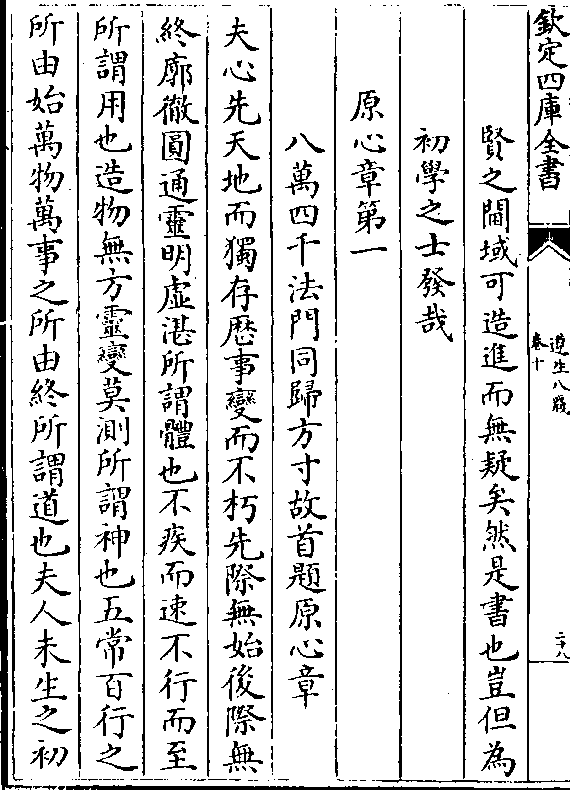 欽定四庫全書
遵生八牋
卷十
二十八
賢之閫域可造進而無疑矣然是書也豈但為
初學之士發哉
原心章第一
八萬四千法門同歸方寸故首題原心章
夫心先天地而獨存歴事變而不朽先際無始後際無
終廓徹圓通靈明虛湛所謂體也不疾而速不行而至
所謂用也造物無方靈變莫測所謂神也五常百行之
所由始萬物萬事之所由終所謂道也夫人未生之初